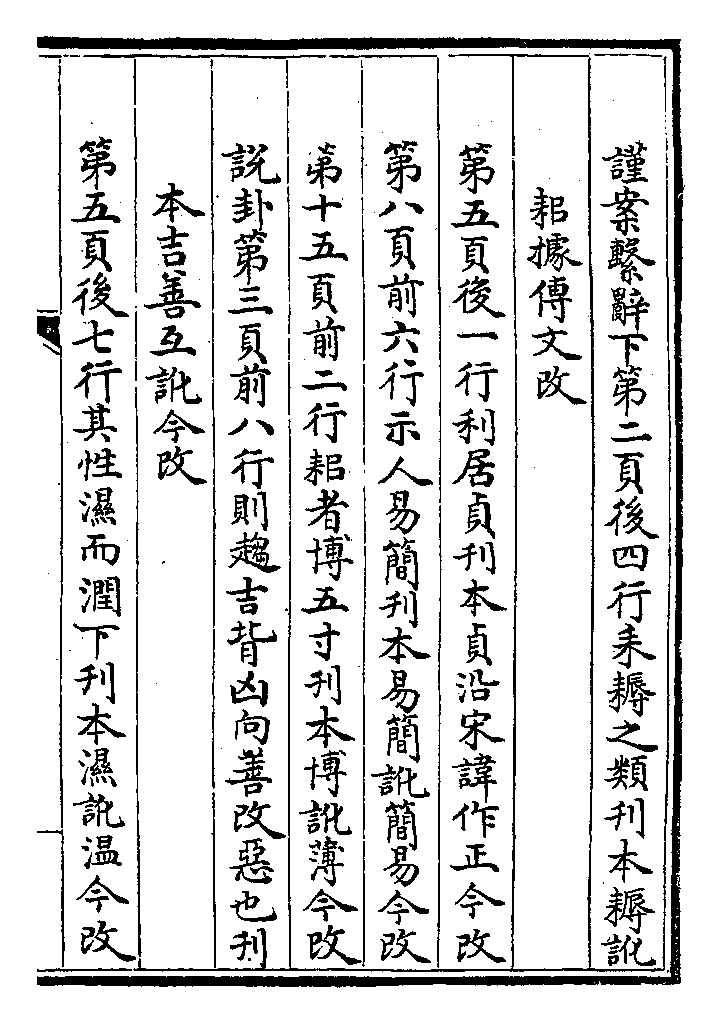 謹案繫辭下第二頁後四行耒耨之類刊本耨訛
耜據傳文改
第五頁後一行利居貞刊本貞沿宋諱作正今改
第八頁前六行示人易簡刊本易簡訛簡易今改
第十五頁前二行耜者博五寸刊本博訛薄今改
説卦第三頁前八行則趨吉背凶向善改惡也刊
本吉善互訛今改
第五頁後七行其性濕而潤下刊本濕訛温今改